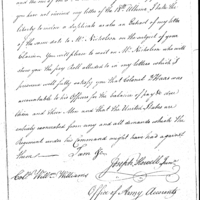 you have not received my letter of the 16th Ultimo, I take the
liberty to inclose a duplicate as also an Extract of my letter
of the same date to Mr Nicholson on the subject of your
Claim. You will please to call on Mr. Nicholson who will
show you the pay Roll alluded to in my letters which I
presume will fully satisfy you that Colonel Harris was
accountable to his Officers for the balance of pay &c due
them and their Men and that the United States are
entirely exonerated from any and all demands which the
Regiment under his command might have had against
them. I am &c
Joseph Howell Junr.
Coll. Will. Williams
Office of Army Accounts